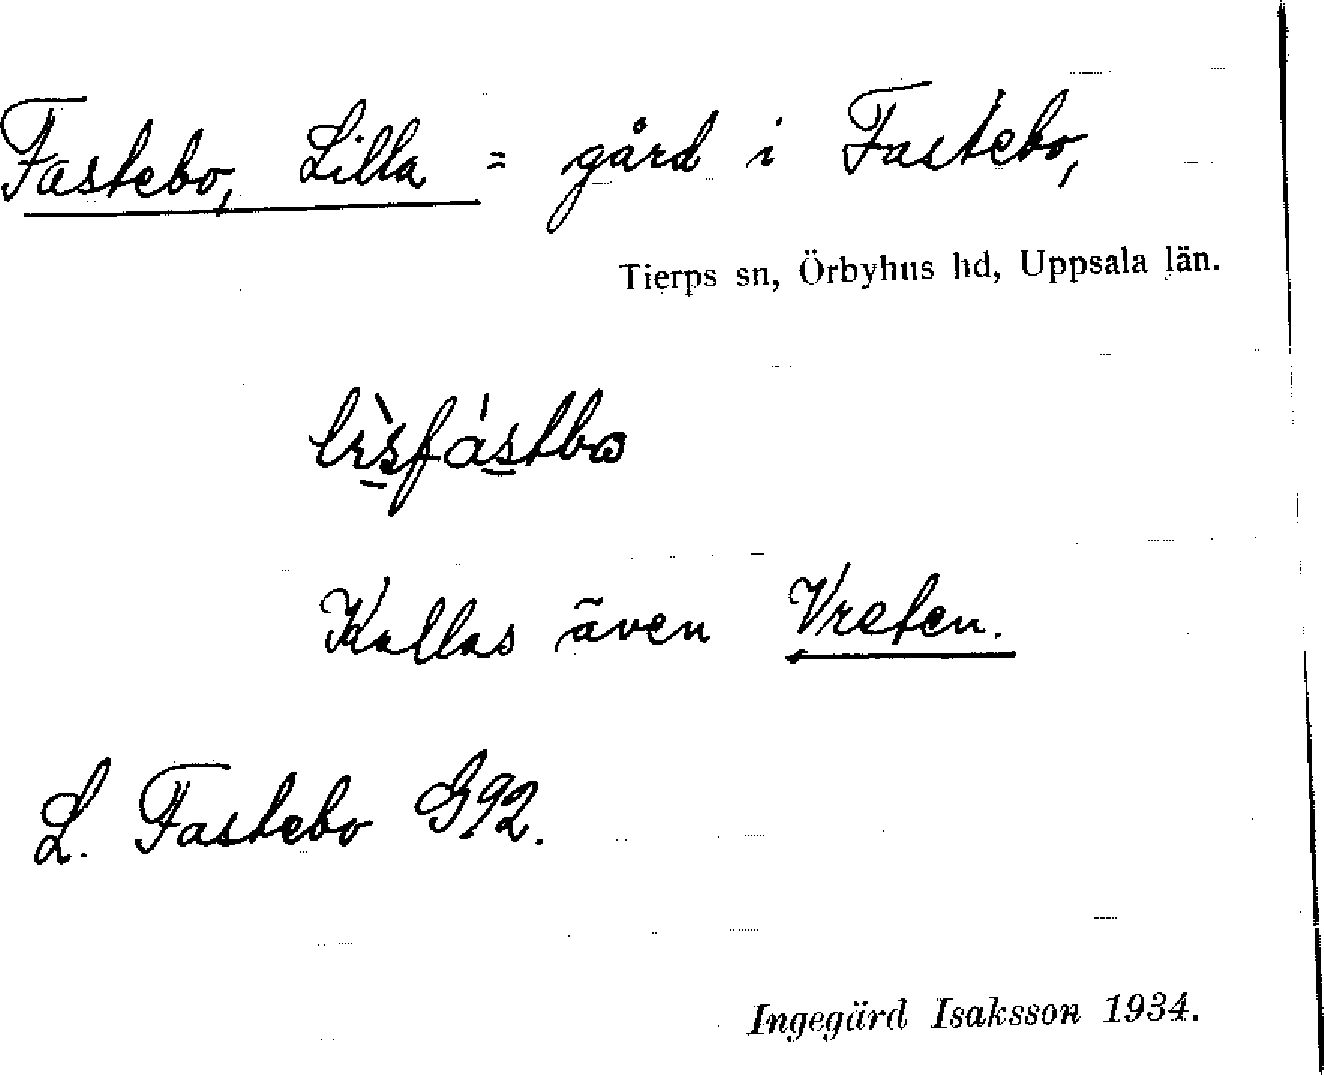 Fastebo, Lilla = gård i Fastebo,
Tierps sn, Örbyhus hd, Uppsala län.
Kallas även Vreten.
L. Fastebo G92.
Ingegärd Isaksson 1934.